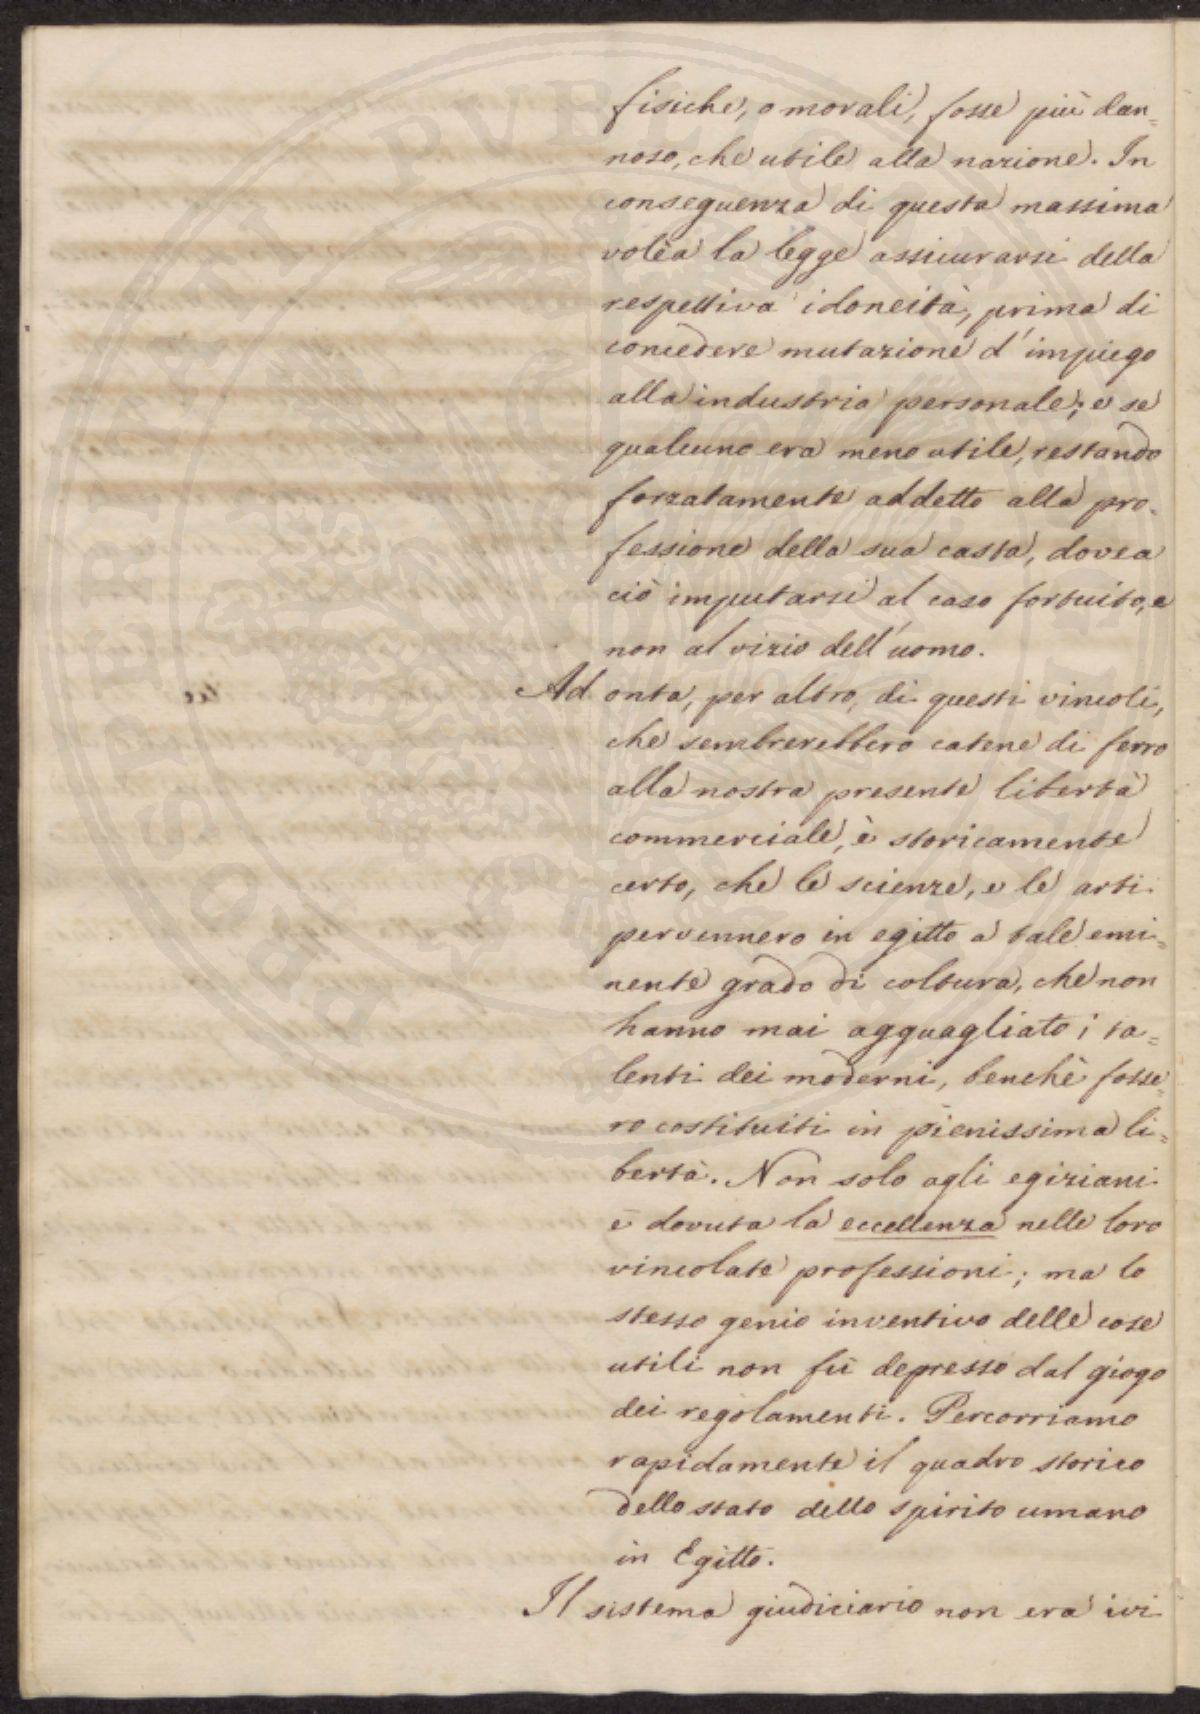 fisiche, o morali, fosse più dan=
noso, che utile alla nazione. In
conseguenza di questa massima
volêa la legge assicurarsi della
respettiva idoneità, prima di
concedere mutazione d'impiego
alla industria personale; e se
qualcuno era meno utile, restando
forzatamente addetto alla pro-
fessione della sua casta, dovea
ciò imputarsi al caso fortuito, e
non al vizio dell'uomo.
Ad onta, per altro, di questi vincoli,
che sembrerebbero catene di ferro
alla nostra presente libertà
commerciale, è storicamente
certo, che le scienze, e le arti
pervennero in egitto a tale emi=
nente grado di coltura, che non
hanno mai agguagliato i ta=
lenti dei moderni, benchè fosse=
ro costituiti in pienissima li=
bertà. Non solo agli egiziani
è dovuta la eccellenza nelle loro
vincolate professioni; ma lo
stesso genio inventivo delle cose
utili non fù depresso dal giogo
dei regolamenti. Percorriamo
rapidamente il quadro storico
dello stato dello spirito umano
in Egitto.
Il sistema giudiciario non era ivi